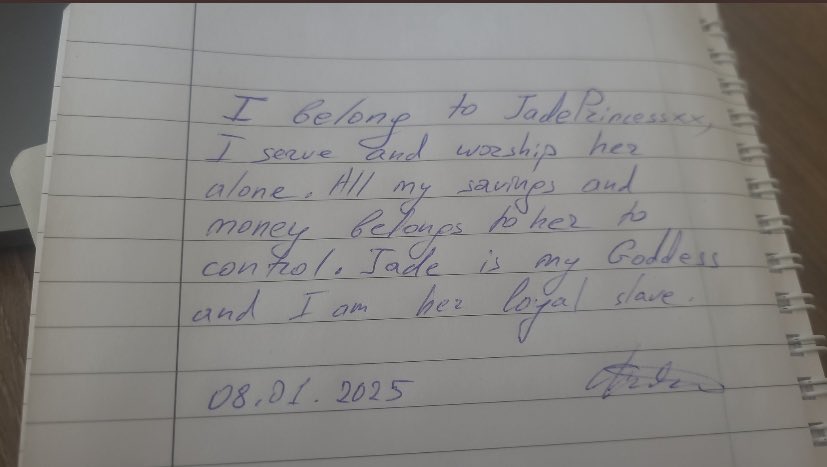 I belong to JadePrincessxx,
I serve and worship her
alone. All my savings and
money belongs to her to
control. Jade is my Goddess
and I am her loyal slave.
08.01.2025